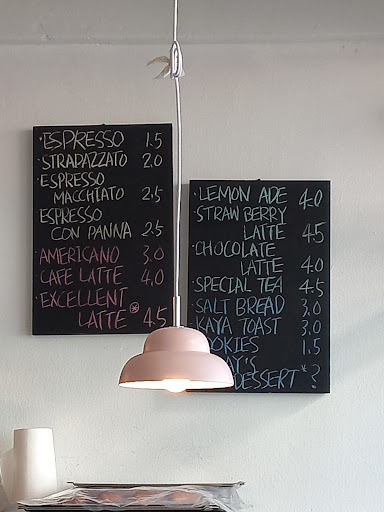 ·ESPRESSO 1.5
·STRAPAZZATO 2.0
·ESPRESSO
MACCHIATO 2.5
ESPRESSO
CON PANNA 2.5
·AMERICANO 3.0
·CAFE LATTE 4.0
·EXCELLENT
LATTE 4.5
·LEMON ADE 4.0
·STRAW BERRY
LATTE 4.5
·CHOCOLATE
LATTE 4.0
·SPECIAL TEA 4.5
·SALT BREAD 3.0
KAYA TOAST 3.0
OOKIES 1.5
AY'S
DESSERT* ?